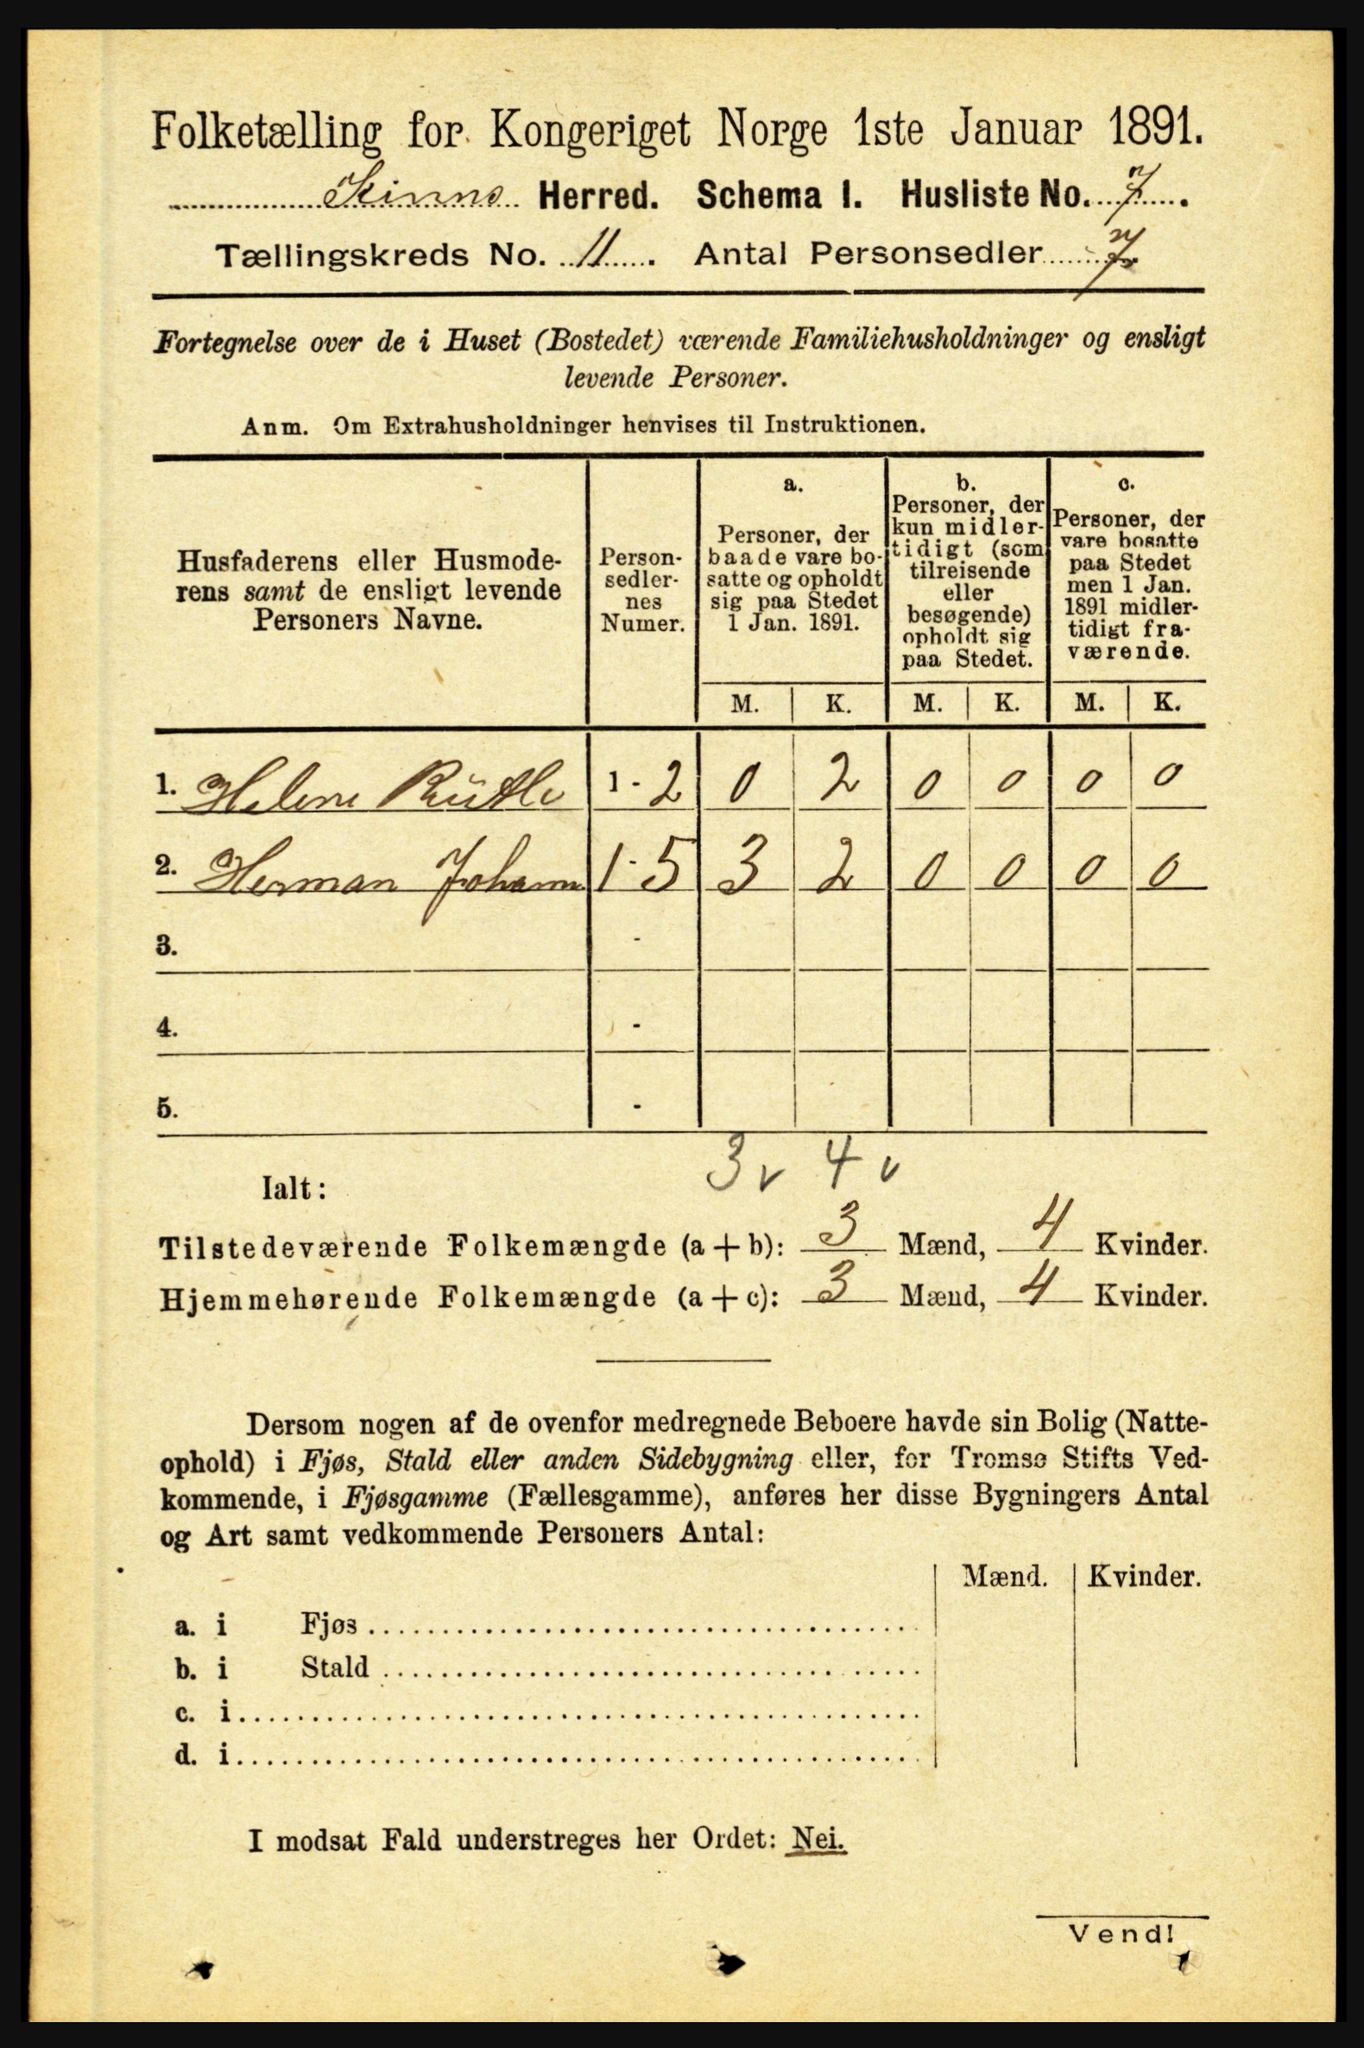 Folketælling for Kongeriget Norge 1ste Januar 1891.
Kinns Herred. Schema I. Husliste No. 7.
Tællingskreds No. 11. Antal Personsedler 7
Fortegnelse over de i Huset (Bostedet) værende Familiehusholdninger og ensligt
levende Personer.
Anm. Om Extrahusholdninger henvises til Instruktionen.
Husfaderens eller Husmode-
rens samt de ensligt levende
Personers Navne.
Person-
sedler-
nes
Numer.
a.
Personer, der
baade vare bo-
satte og opholdt
sig paa Stedet
1 Jan. 1891.
b.
Personer, der
kun midler-
tidigt (som
tilreisende
eller
besøgende)
opholdt sig
paa Stedet.
c.
Personer, der
vare bosatte
paa Stedet
men 1 Jan.
1891 midler-
tidigt fra-
værende.
M. K. M. K. M. K.
1. Helene 1 - 2 0 2 0 0 0 0
2. Herman Johann 1 - 5 3 2 0 0 0 0
3. -
4. -
5. -
3 v 4 v
Ialt:
Tilstedeværende Folkemængde (a + b): 3 Mænd, 4 Kvinder.
Hjemmehørende Folkemængde (a + c): 3 Mænd, 4 Kvinder.
Dersom nogen af de ovenfor medregnede Beboere havde sin Bolig (Natte-
ophold) i Fjøs, Stald eller anden Sidebygning eller, for Tromsø Stifts Ved-
kommende, i Fjøsgamme (Fællesgamme), anføres her disse Bygningers Antal
og Art samt vedkommende Personers Antal:
Mænd. Kvinder.
a. i Fjøs
b. i Stald
c. i
d. i
I modsat Fald understreges her Ordet: Nei.
Vend!